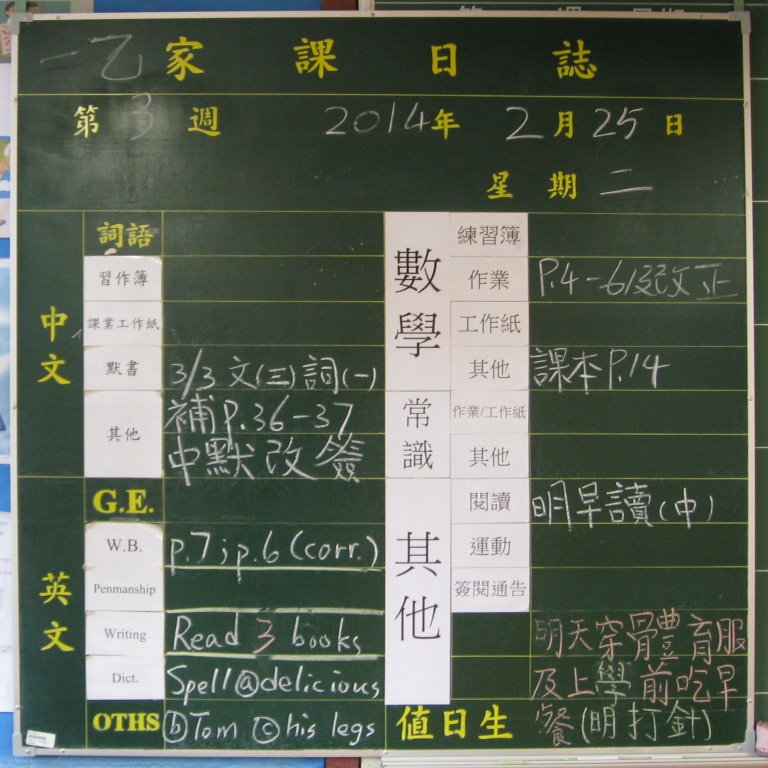 一乙家課日誌
第3週 2014年2月25日
星期二
中文
詞語
習作簿
課業工作紙
默書 3/3 文(三)詞(一)
其他 補P.36-37
中默改簽
英文
G.E.
W.B. p.7; p.6 (corr.)
Penmanship
Writing Read 3 books
Dict. Spell ⓐdelicious
OTHS ⓑTom ⓒhis legs
數學
練習簿
作業 P.4-6及改正
工作紙
其他 課本P.14
常識
作業/工作紙
其他
其他
閱讀 明早讀(中)
運動
簽閱通告
明天穿體育服
及上學前吃早
餐(明打針)
值日生